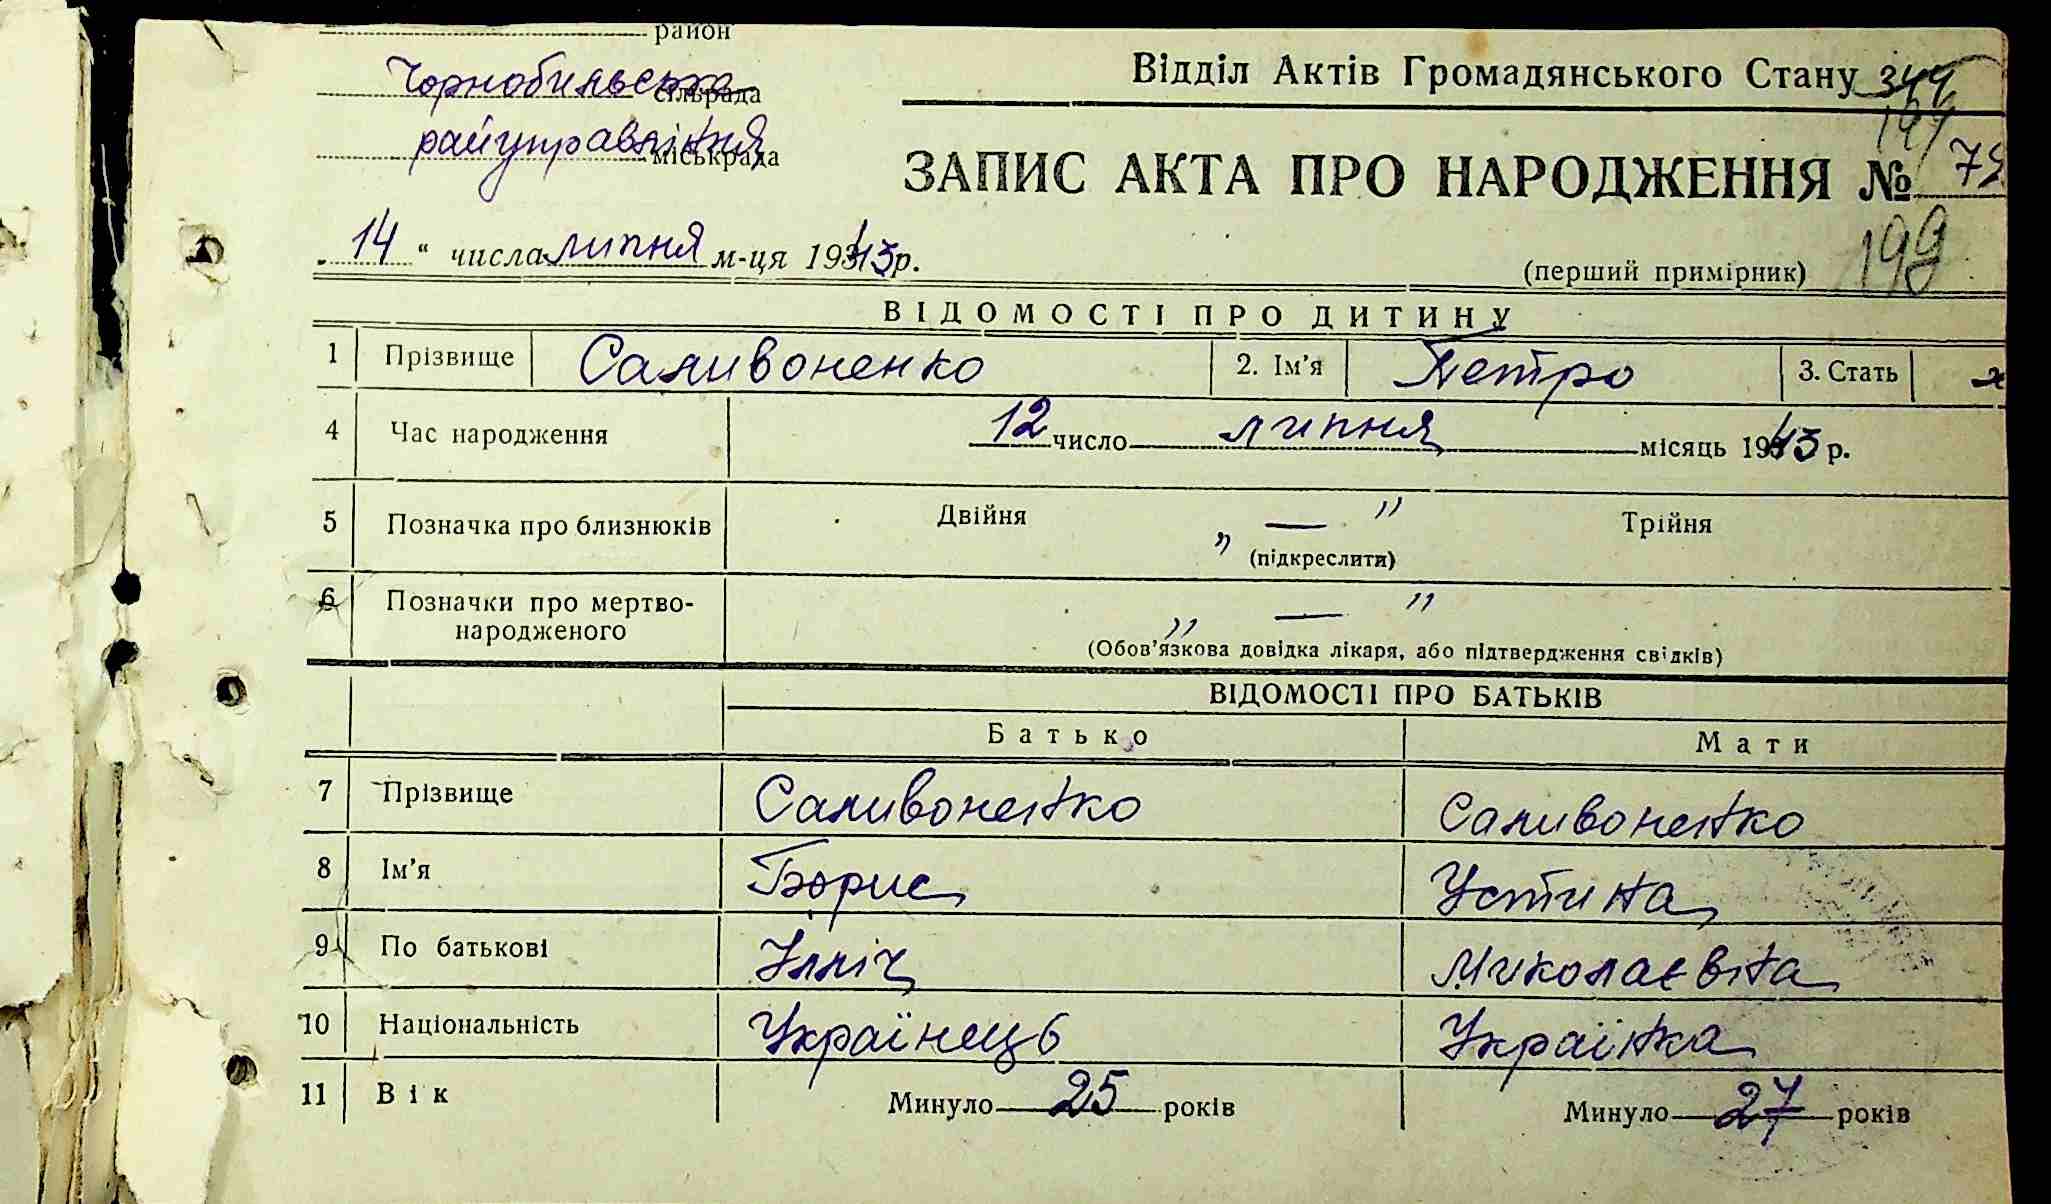 район
Чорнобильська сільрада
райуправління міськрада
Відділ Актів Громадянського Стану 344
199
ЗАПИС АКТА ПРО НАРОДЖЕННЯ №
„ 14 “ числа липня м-ця 1943 р.
(перший примірник) 199
ВІДОМОСТІ ПРО ДИТИНУ
1 Прізвище Саливоненко 2. Ім'я Петро 3. Стать
4 Час народження 12 число липня місяць 1943 р.
5 Позначка про близнюків Двійня „ — " Трійня
(підкреслити)
6 Позначки про мертво-
народженого „ — "
(Обов'язкова довідка лікаря, або підтвердження свідків)
ВІДОМОСТІ ПРО БАТЬКІВ
Батько Мати
7 Прізвище Саливоненко Саливоненко
8 Ім'я Борис Устина
9 По батькові Ілліч Миколаєвна
10 Національність Українець Українка
11 Вік Минуло 25 років Минуло 27 років